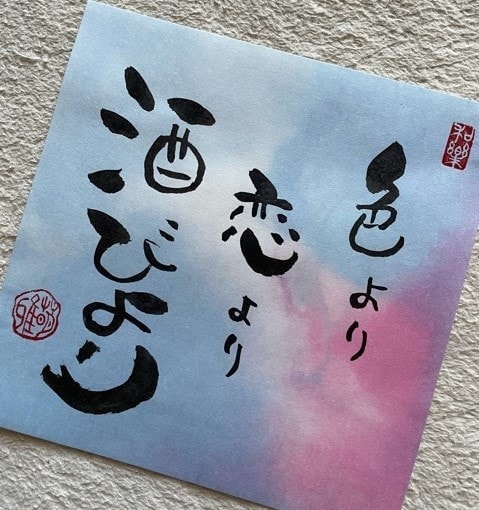 和樂
色より
恋より
酒びより